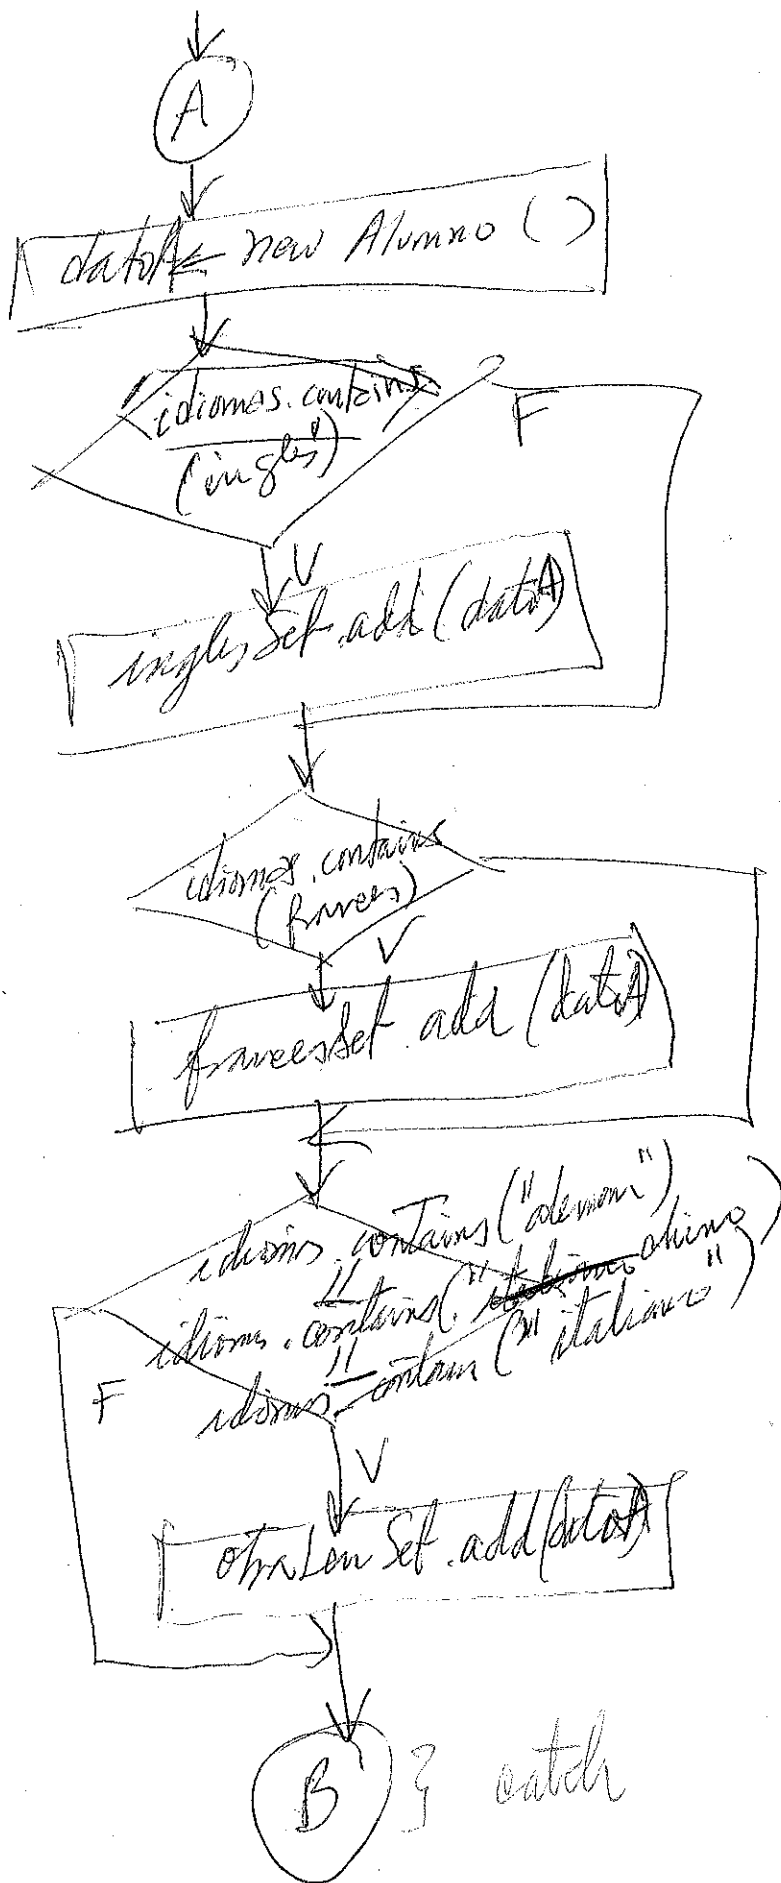 A
datoA ← new Alumno ()
idiomas.contains
(ingles")
F
V
inglesSet.add(datoA)
idiomas.contains
(frances)
V
francesSet.add(datoA)
idioms.contains("aleman")
||
idioms.contains("chino)
||
idioms.contain("italiano")
F
V
otraLenSet.add(datoA)
B } catch